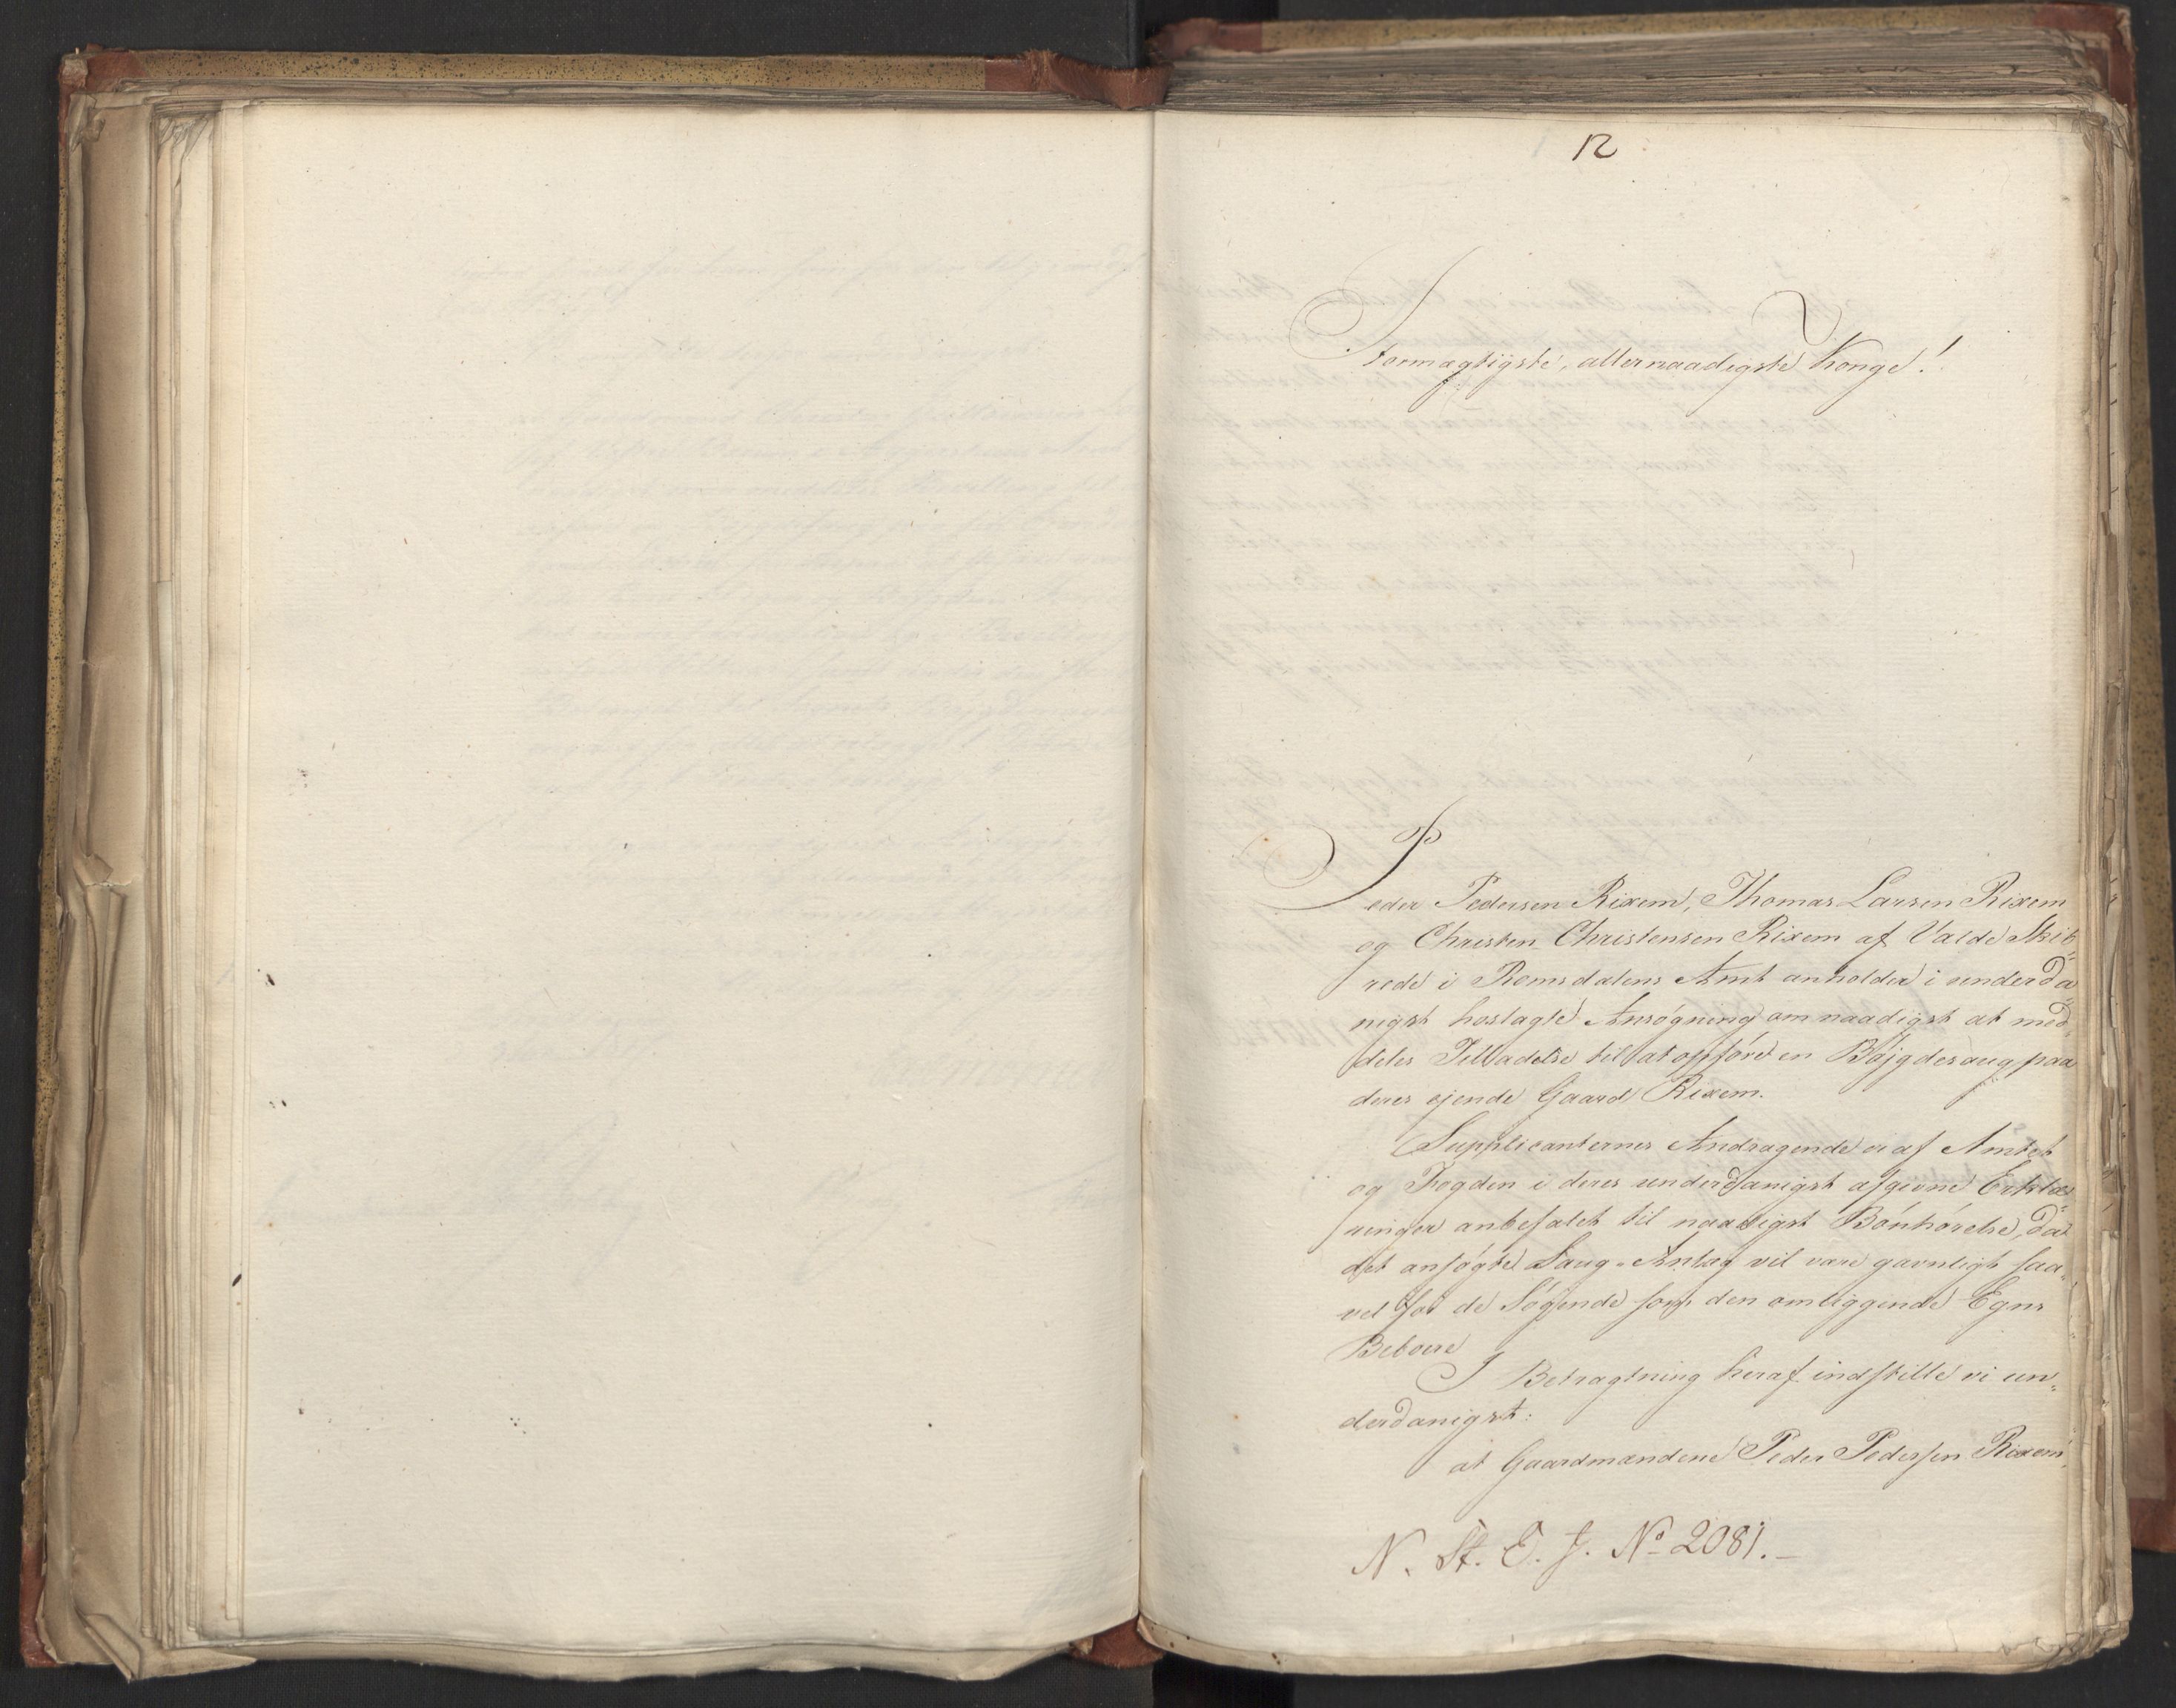 12
Stormægtigste, allernaadigste Konge!
Peder Pedersen Rixem, Thomas Larsen Rixem
og Christen Christensen Rixem af Valde Skib„
rede i Romsdalens Amt anholder i underda„
nigst hoslagte Ansøgning om naadigst at med„
deles Tilladelse til at opføre en Bøjgdesaug paa
deres ejende Gaard Rixem.
Supplicanternes Andragende er af Amtet
og Fogden i deres underdanigst afgivne Erklæ„
ringer anbefalet til naadigst Bønhørelse, da
det ansøgte Saug-Anlæg vil være gavnligt saa„
vel for de Søgende som den omliggende Egns
Beboere
I Betragtning heraf indstille vi un„
derdanigst:
at Gaardmændene Peder Pedersen Rixem,
N. St. E. J. No 2081.-